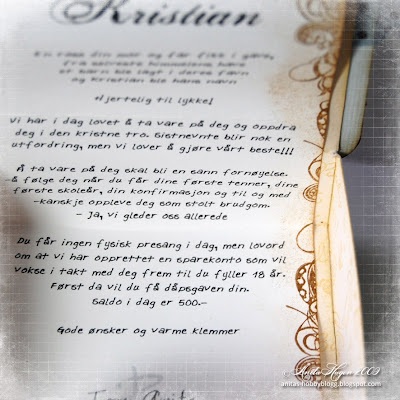 Kristian
En rose din mor og far fikk i gave,
fra selveste himmelens have
et barn ble lagt i deres favn
og Kristian ble hans navn
Hjertelig til lykke!
Vi har i dag lovet å ta vare på deg og oppdra
deg i den kristne tro. Sistnevnte blir nok en
utfordring, men vi lover å gjøre vårt beste!!!
Å ta vare på deg skal bli en sann fornøyelse.
-å følge deg når du får dine første tenner, dine
første skoleår, din konfirmasjon og til og med
-kanskje oppleve deg som stolt brudgom.
- Ja, vi gleder oss allerede
Du får ingen fysisk presang i dag, men lovord
om at vi har opprettet en sparekonto som vil
vokse i takt med deg frem til du fyller 18 år.
Først da vil du få dåpsgaven din.
Saldo i dag er 500.-
Gode ønsker og varme klemmer
Anita Hagen 2009
anitas-hobbyblogg.blogspot.com